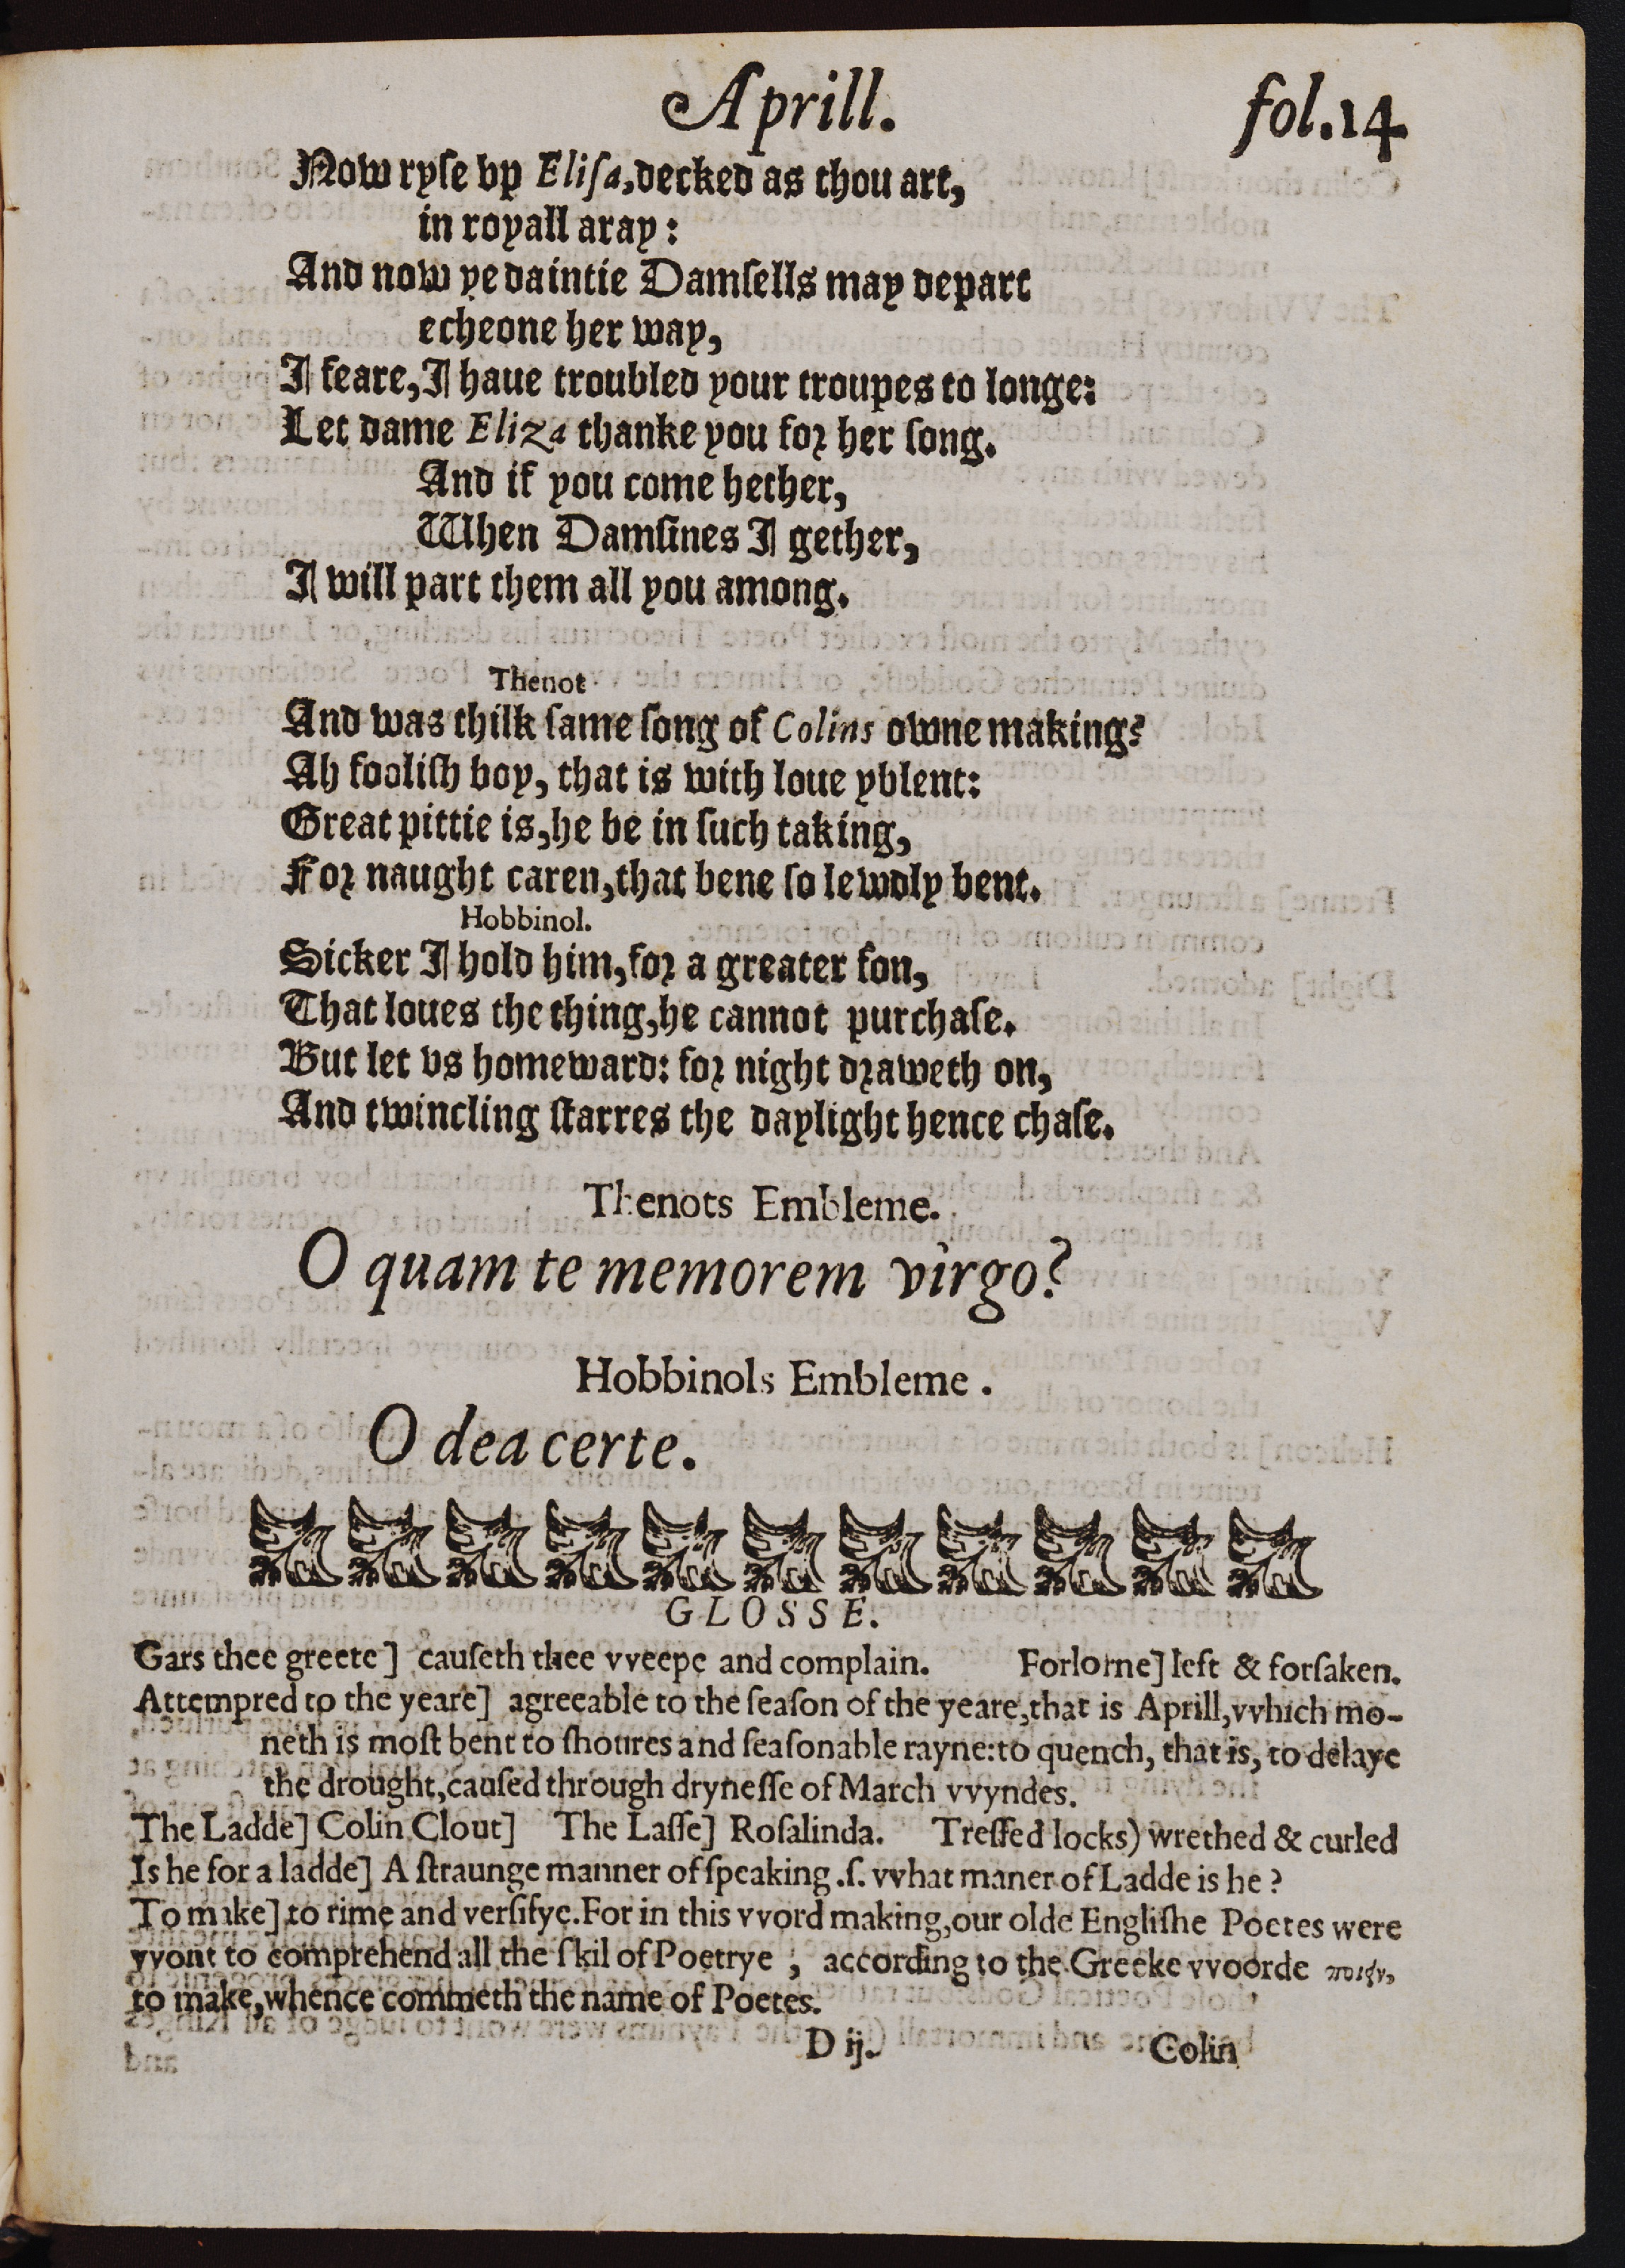 Aprill. fol.14
Now ryſe vp Eliſa, decked as thou art,
in royall aray:
And now ye daintie Damſells may depart
echeone her way,
I feare, I haue troubled your troupes to longe:
Let dame Eliza thanke you for her ſong.
And if you come hether,
When Damſines I gether,
I will part them all you among.
Thenot
And was thilk ſame ſong of Colins owne making?
Ah fooliſh boy, that is with loue yblent:
Great pittie is, he be in ſuch taking,
For naught caren, that bene ſo lewdly bent.
Hobbinol.
Sicker I hold him, for a greater fon,
That loues the thing, he cannot purchaſe.
But let vs homeward: for night draweth on,
And twincling ſtarres the daylight hence chaſe.
Thenots Embleme.
O quam te memorem virgo?
Hobbinols Embleme.
O dea certe.
GLOSSE.
Gars thee greete] cauſeth thee vveepe and complain. Forlorne] left & forſaken.
Attempred to the yeare] agreeable to the ſeaſon of the yeare, that is Aprill, vvhich mo-
neth is moſt bent to ſhoures and ſeaſonable rayne: to quench, that is, to delaye
the drought, cauſed through dryneſſe of March vvyndes.
The Ladde] Colin Clout] The Laſſe] Roſalinda. Treſſed locks) wrethed & curled
Is he for a ladde] A ſtraunge manner of ſpeaking .ſ. vvhat maner of Ladde is he?
To make] to rime and verſifye. For in this vvord making, our olde Engliſhe Poetes were
vvont to comprehend all the ſkil of Poetrye, according to the Greeke vvoorde ποιεῖν,
to make, whence commeth the name of Poetes.
D ij. Colin